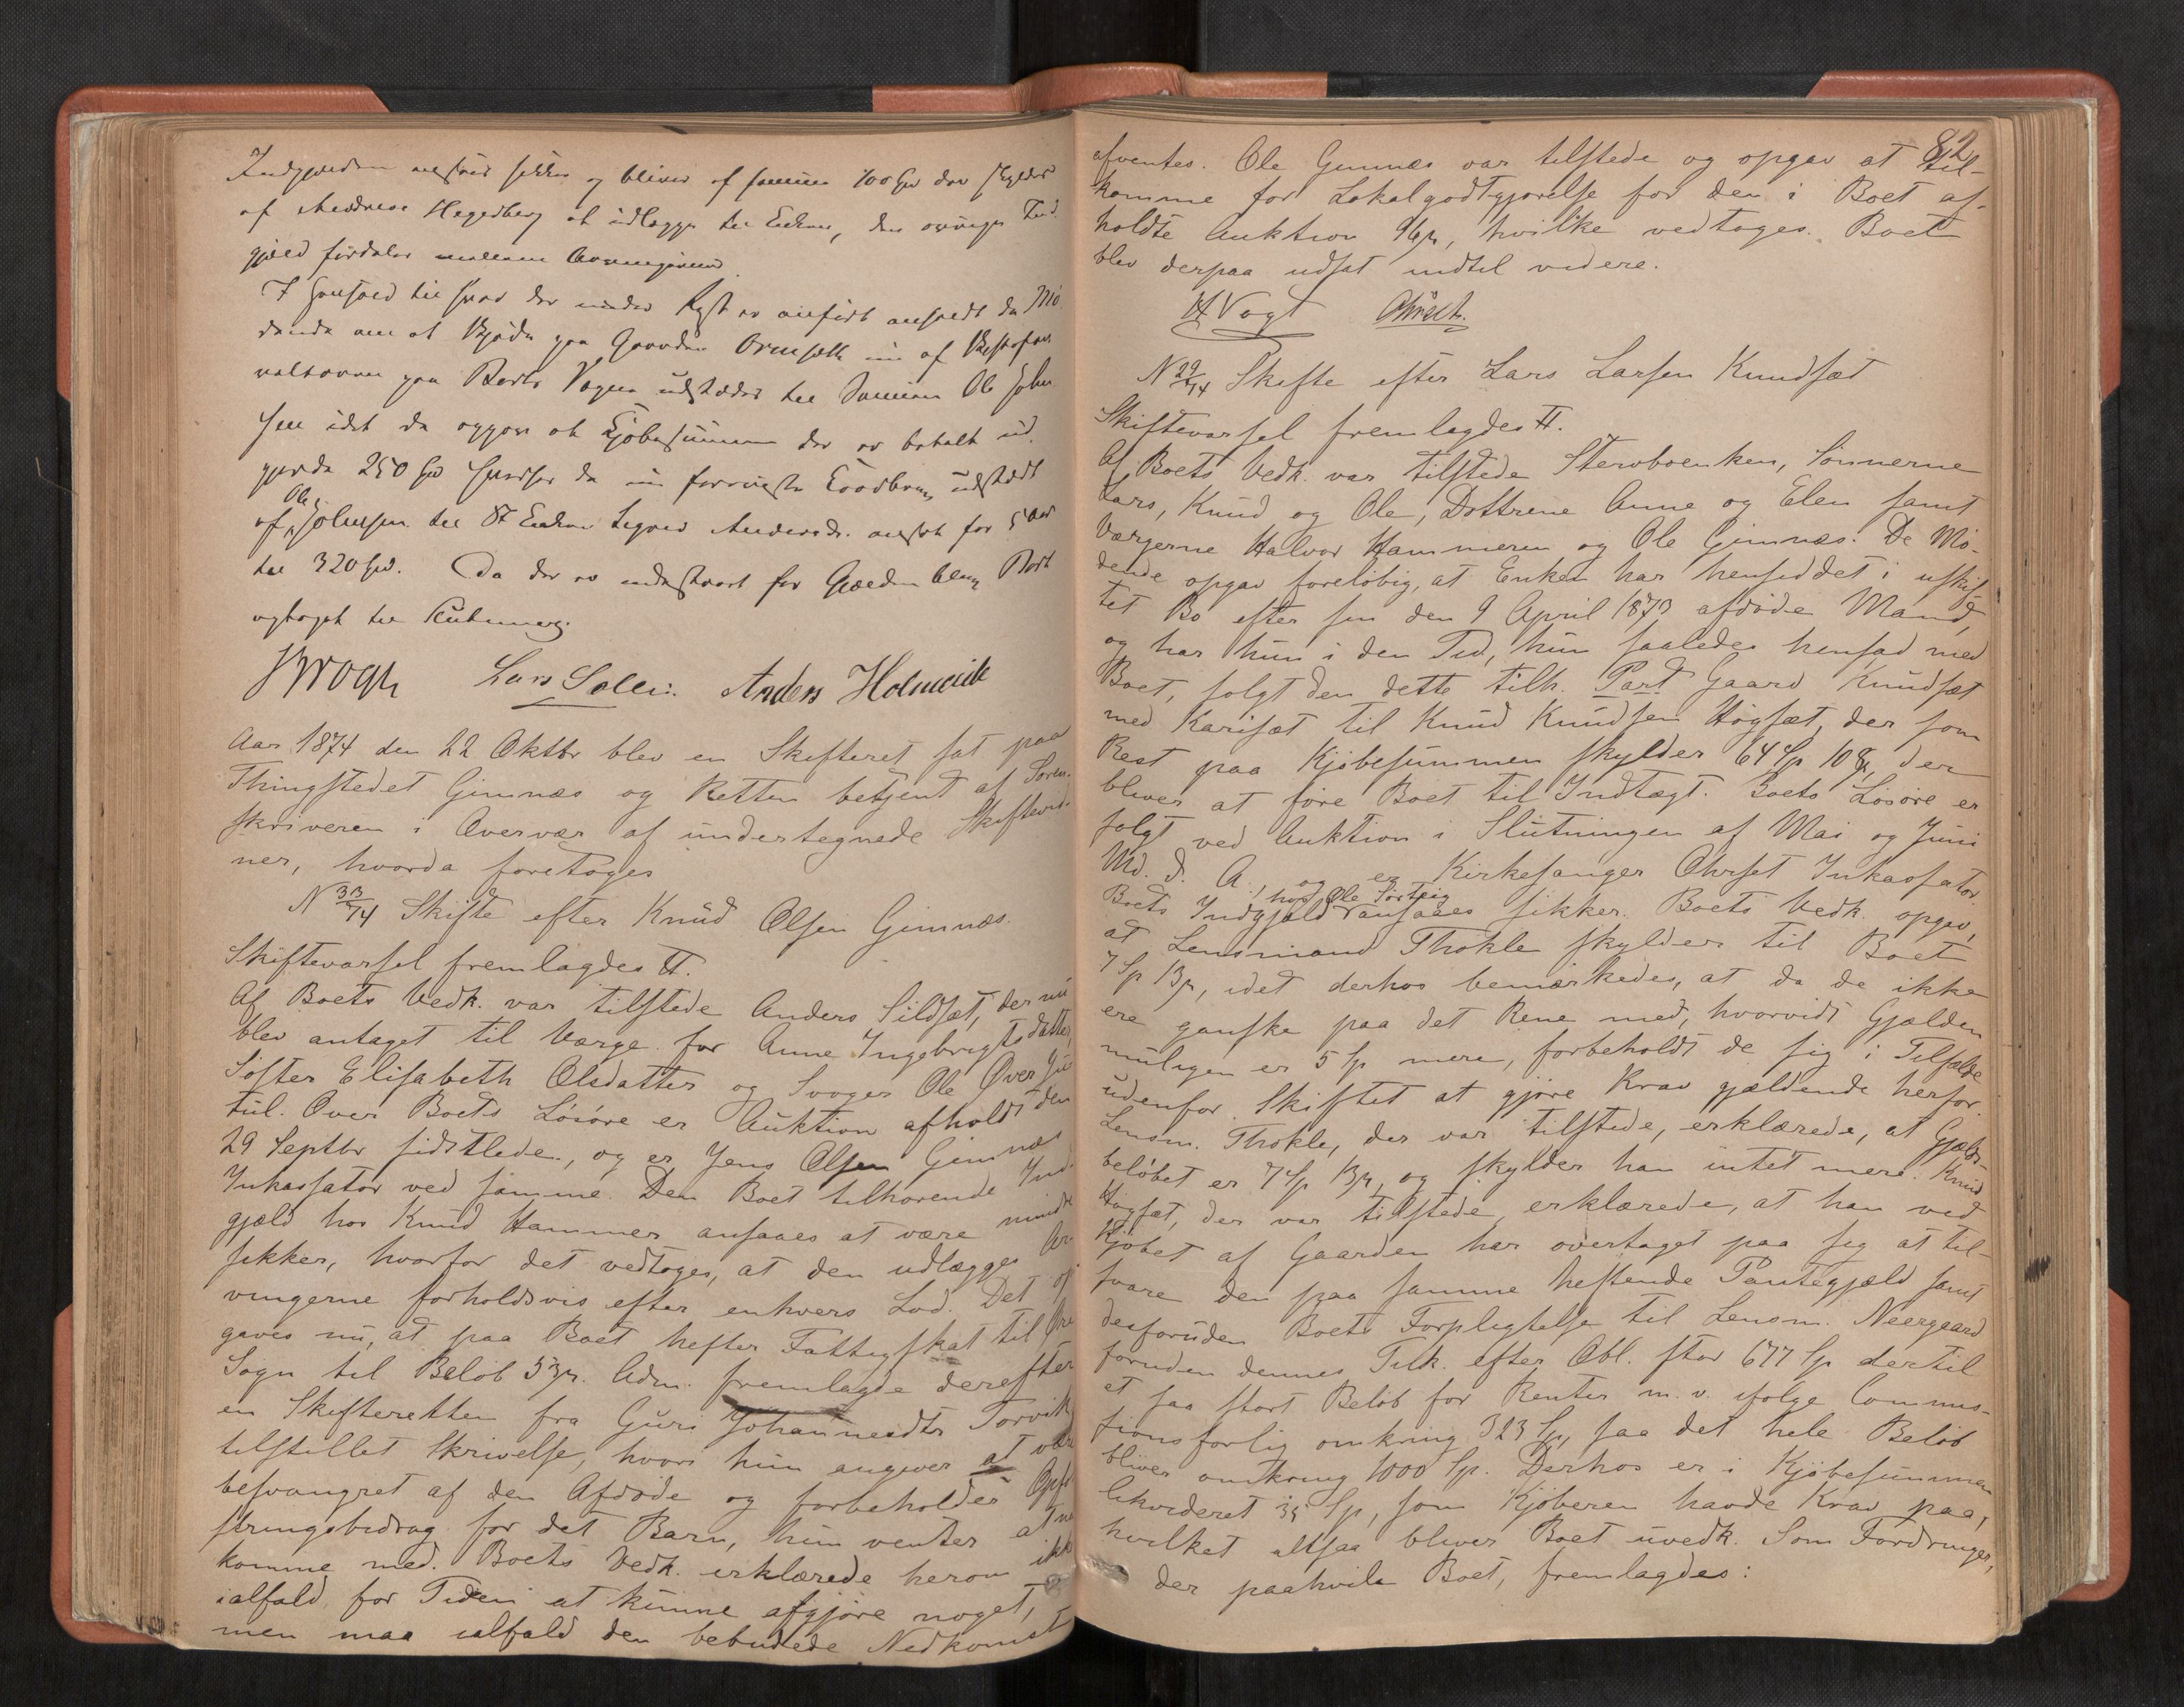 Indgjælden ansees sikker og bliver af samme 100 Spd der skyldes
af Andreas Hegedberg at udlægge til Enken, den øvrige Ind-
gjæld fordeles mellem Arvingerne.
I Henhold til hvad der under Regst er anført ansøgte de Mö-
dende om at Skjøde paa Gaarden Ormsæth af
paa Boets Vegne udstædes til Sønnen Ole John-
sen idet de opgav at Kjøbesummen der er betalt ud-
gjorde 250 Spd hvorhos de udstædt
af Ole Johnsen til Enken Sigrid Andersdr. ansat for 5 Aar
til 320 Spd. Da der er indestaaet for Gjælden blev Boet
optaget til Slutning.
Krogh Lars Sollie Anders Holmeide
Aar 1874 den 22 Oktbr blev en Skifteret sat paa
Thingstedet Gimnæs og Retten betjent af Soren-
skriveren i Overvær af undertegnede Skiftevid-
ner, hvorda foretoges
N 33/74 Skifte efter Knud Olsen Gimnæs.
Skiftevarsel fremlagdes H.
Af Boets Vedk. var tilstede Anders Sildset, der nu
blev antaget til Værge for Anne Ingebrigtsdatter,
Søster Elisabeth Olsdatter og Svoger Ole Øver Ju-
tul. Over Boets Løsøre er Auktion afholdt den
29 Septbr sidstleden, og er Jens Olsen Gimnæs
Inkassator ved samme. Den Boet tilhørende Ind-
gjæld hos Knud Hammer ansaaes at være mindre
sikker, hvorfor det vedtoges, at den udlægges Ar-
vingerne forholdsvis efter enhvers Lod. Det op-
gaves nu, at paa Boet hefter Fattigskat til Øre
Sogn til Beløb 53 β. Adm. fremlagde derefter
en Skifteretten fra Guri Johannesdtr Torvik
tilstillet Skrivelse, hvori hun angiver at være
besvangret af den Afdøde og forbeholder Opfo-
stringsbidrag for det Barn, hun venter at ned-
komme med. Boets Vedk. erklærede herom ikke
ialfald for Tiden at kunne afgjøre noget,
men maa ialfald den bebudede Nedkomst
82
afventes. Ole Gimnæs var tilstede og opgav at til-
komme for Lokalgodtgjørelse for den i Boet af-
holdte Auktion 96 β, hvilke vedtoges. Boet
blev derpaa udsat indtil videre.
H Vogt Ohrset.
N 29/74 Skifte efter Lars Larsen Knudsæt
Skiftevarsel fremlagdes H.
Af Boets Vedk. var tilstede Stervboenken, Sønnerne
Lars, Knud og Ole, Døttrene Anne og Elen samt
Værgerne Halvor Hammeren og Ole Gimnæs. De Mö-
dende opgav foreløbig, at Enken har hensiddet i uskif-
tet Bo efter sin den 9 April 1873 afdøde Mand,
og har hun i den Tid, hun saaledes hensad med
Boet, solgt den dette tilh. Part Gaard Knudsæt
med Karisæt til Knud Knudsen Høgsæt, der som
Rest paa Kjøbesummen skylder 64 Sp 108 β, der
bliver at føre Boet til Indtægt. Boets Løsøre er
solgt ved Auktion i Slutningen af Mai og Juni
Md. d. A., og er Kirkesanger Ohrset Inkassator.
Boets Indgjæld hos Ole Sørteig ansaaes sikker. Boets Vedk. opgav,
at Lensmand Thokle skylder til Boet
7 Sp 13 β, idet derhos bemærkedes, at da de ikke
ere ganske paa det Rene med, hvorvidt Gjælden
muligen er 5 Sp mere, forbeholdt de sig i Tilfælde
udenfor Skiftet at gjøre Krav gjældende herfor.
Lensm. Thokle, der var tilstede, erklærede, at Gjælds-
beløbet er 7 Sp 13 β, og skylder han intet mere. Knud
Høgsæt, der var tilstede, erklærede, at han ved
Kjøbet af Gaarden har overtaget paa sig at til-
svare den paa samme heftende Pantegjæld samt
desforuden Boets Forpligtelse til Lensm. Neergaard
foruden dennes Tilk. efter Obl. stor 677 Sp dertil
et saa stort Beløb for Renter m. v. ifølge Commis-
sionsforlig omkring 323 Sp, saa det hele Beløb
bliver omkring 1000 Sp. Derhos er i Kjøbesummen
likvideret 35 Sp, som Kjøberen havde Krav paa,
hvilket altsaa bliver Boet uvedk. Som Fordringer,
der paahvile Boet, fremlagdes: